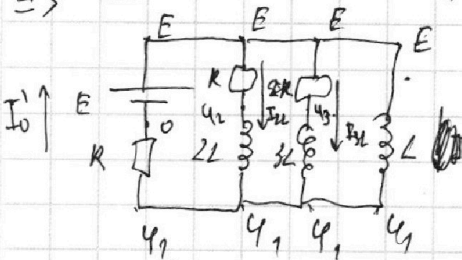 =>
E E E E
I₀' E R φ₂ I₂L 2R φ₃ I₃L
0
R 2L 3L L
φ₁ φ₁ φ₁ φ₁